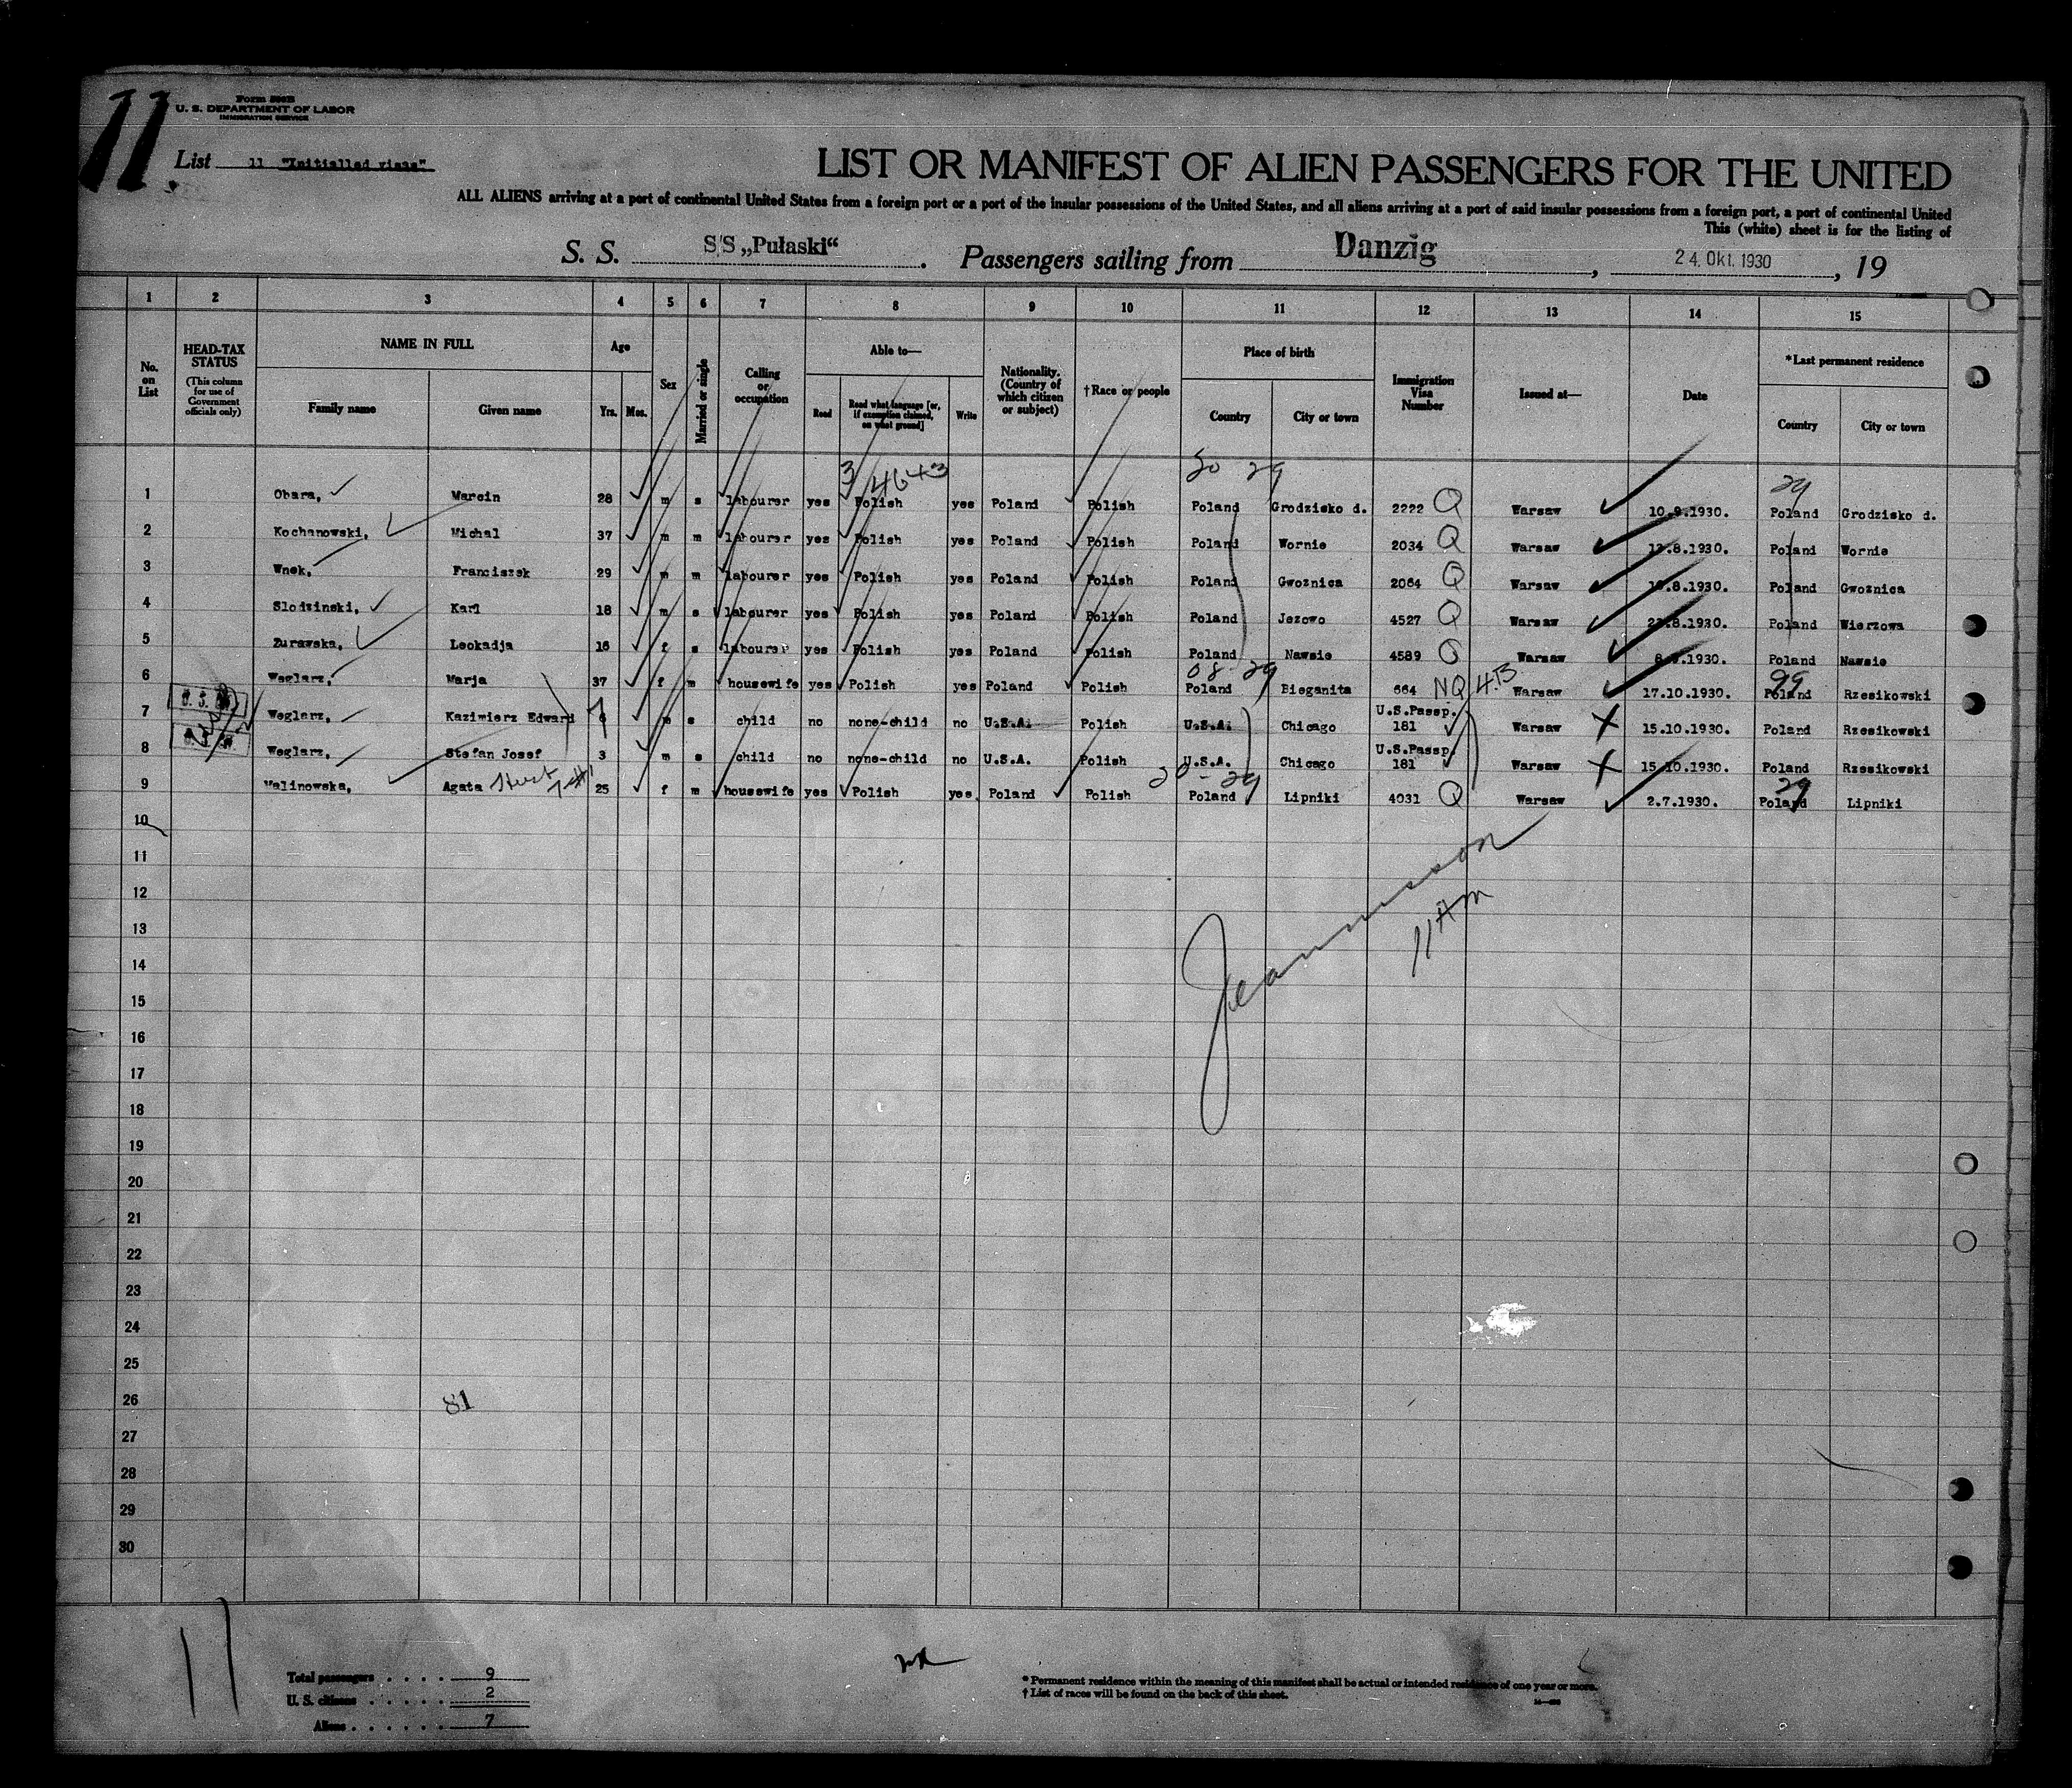 11
Form 500B
U. S. DEPARTMENT OF LABOR
IMMIGRATION SERVICE
List 11 "Initialled visas"
LIST OR MANIFEST OF ALIEN PASSENGERS FOR THE UNITED
ALL ALIENS arriving at a port of continental United States from a foreign port or a port of the insular possessions of the United States, and all aliens arriving at a port of said insular possessions from a foreign port, a port of continental United
This (white) sheet is for the listing of
S. S. S/S „Pułaski“. Passengers sailing from Danzig, 24. Okt. 1930, 19
1 2 3 4 5 6 7 8 9 10 11 12 13 14 15
No. on List
HEAD-TAX STATUS (This column for use of Government officials only)
NAME IN FULL
Family name Given name
Age
Yrs. Mos.
Sex
Married or single
Calling or occupation
Able to—
Read Read what language [or, if exemption claimed, on what ground] Write
Nationality. (Country of which citizen or subject)
†Race or people
Place of birth
Country City or town
Immigration Visa Number
Issued at—
Date
*Last permanent residence
Country City or town
3/4643 50 29 29
1 Obara, Marcin 28 m s labourer yes Polish yes Poland Polish Poland Grodzisko d. 2222 Q Warsaw 10.9.1930. Poland Grodzisko d.
2 Kochanowski, Michal 37 m m labourer yes Polish yes Poland Polish Poland Wornie 2034 Q Warsaw 12.8.1930. Poland Wornie
3 Wnek, Franciszek 29 m m labourer yes Polish yes Poland Polish Poland Gwoznica 2064 Q Warsaw .8.1930. Poland Gwoznica
4 Slodzinski, Karl 18 m s labourer yes Polish yes Poland Polish Poland Jezowo 4527 Q Warsaw 22.8.1930. Poland Wierzowa
5 Zurawska, Leokadja 16 f s labourer yes Polish yes Poland Polish Poland Nawsie 4589 Q Warsaw 1930. Poland Nawsie
08 - 29 99
6 Weglarz, Marja 37 f m housewife yes Polish yes Poland Polish Poland Bieganita 664 NQ 4.B Warsaw 17.10.1930. Poland Rzesikowski
7 Weglarz, Kazimierz Edward 7 m s child no none-child no U.S.A. Polish U.S.A. Chicago U.S.Passp. 181 Warsaw X 15.10.1930. Poland Rzesikowski
8 Weglarz, Stefan Josef 3 m s child no none-child no U.S.A. Polish U.S.A. Chicago U.S.Passp. 181 Warsaw X 15.10.1930. Poland Rzesikowski
20 - 29 29
9 Malinowska, Agata 25 f m housewife yes Polish yes Poland Polish Poland Lipniki 4031 Q Warsaw 2.7.1930. Poland Lipniki
10
11
12
13
14
15
16
17
18
19
20
21
22
23
24
25
26
27
28
29
30
11 AM
81
11
Total passengers . . . . 9
U. S. citizens . . . . . 2
Aliens . . . . . . 7
* Permanent residence within the meaning of this manifest shall be actual or intended residence of one year or more.
† List of races will be found on the back of this sheet.